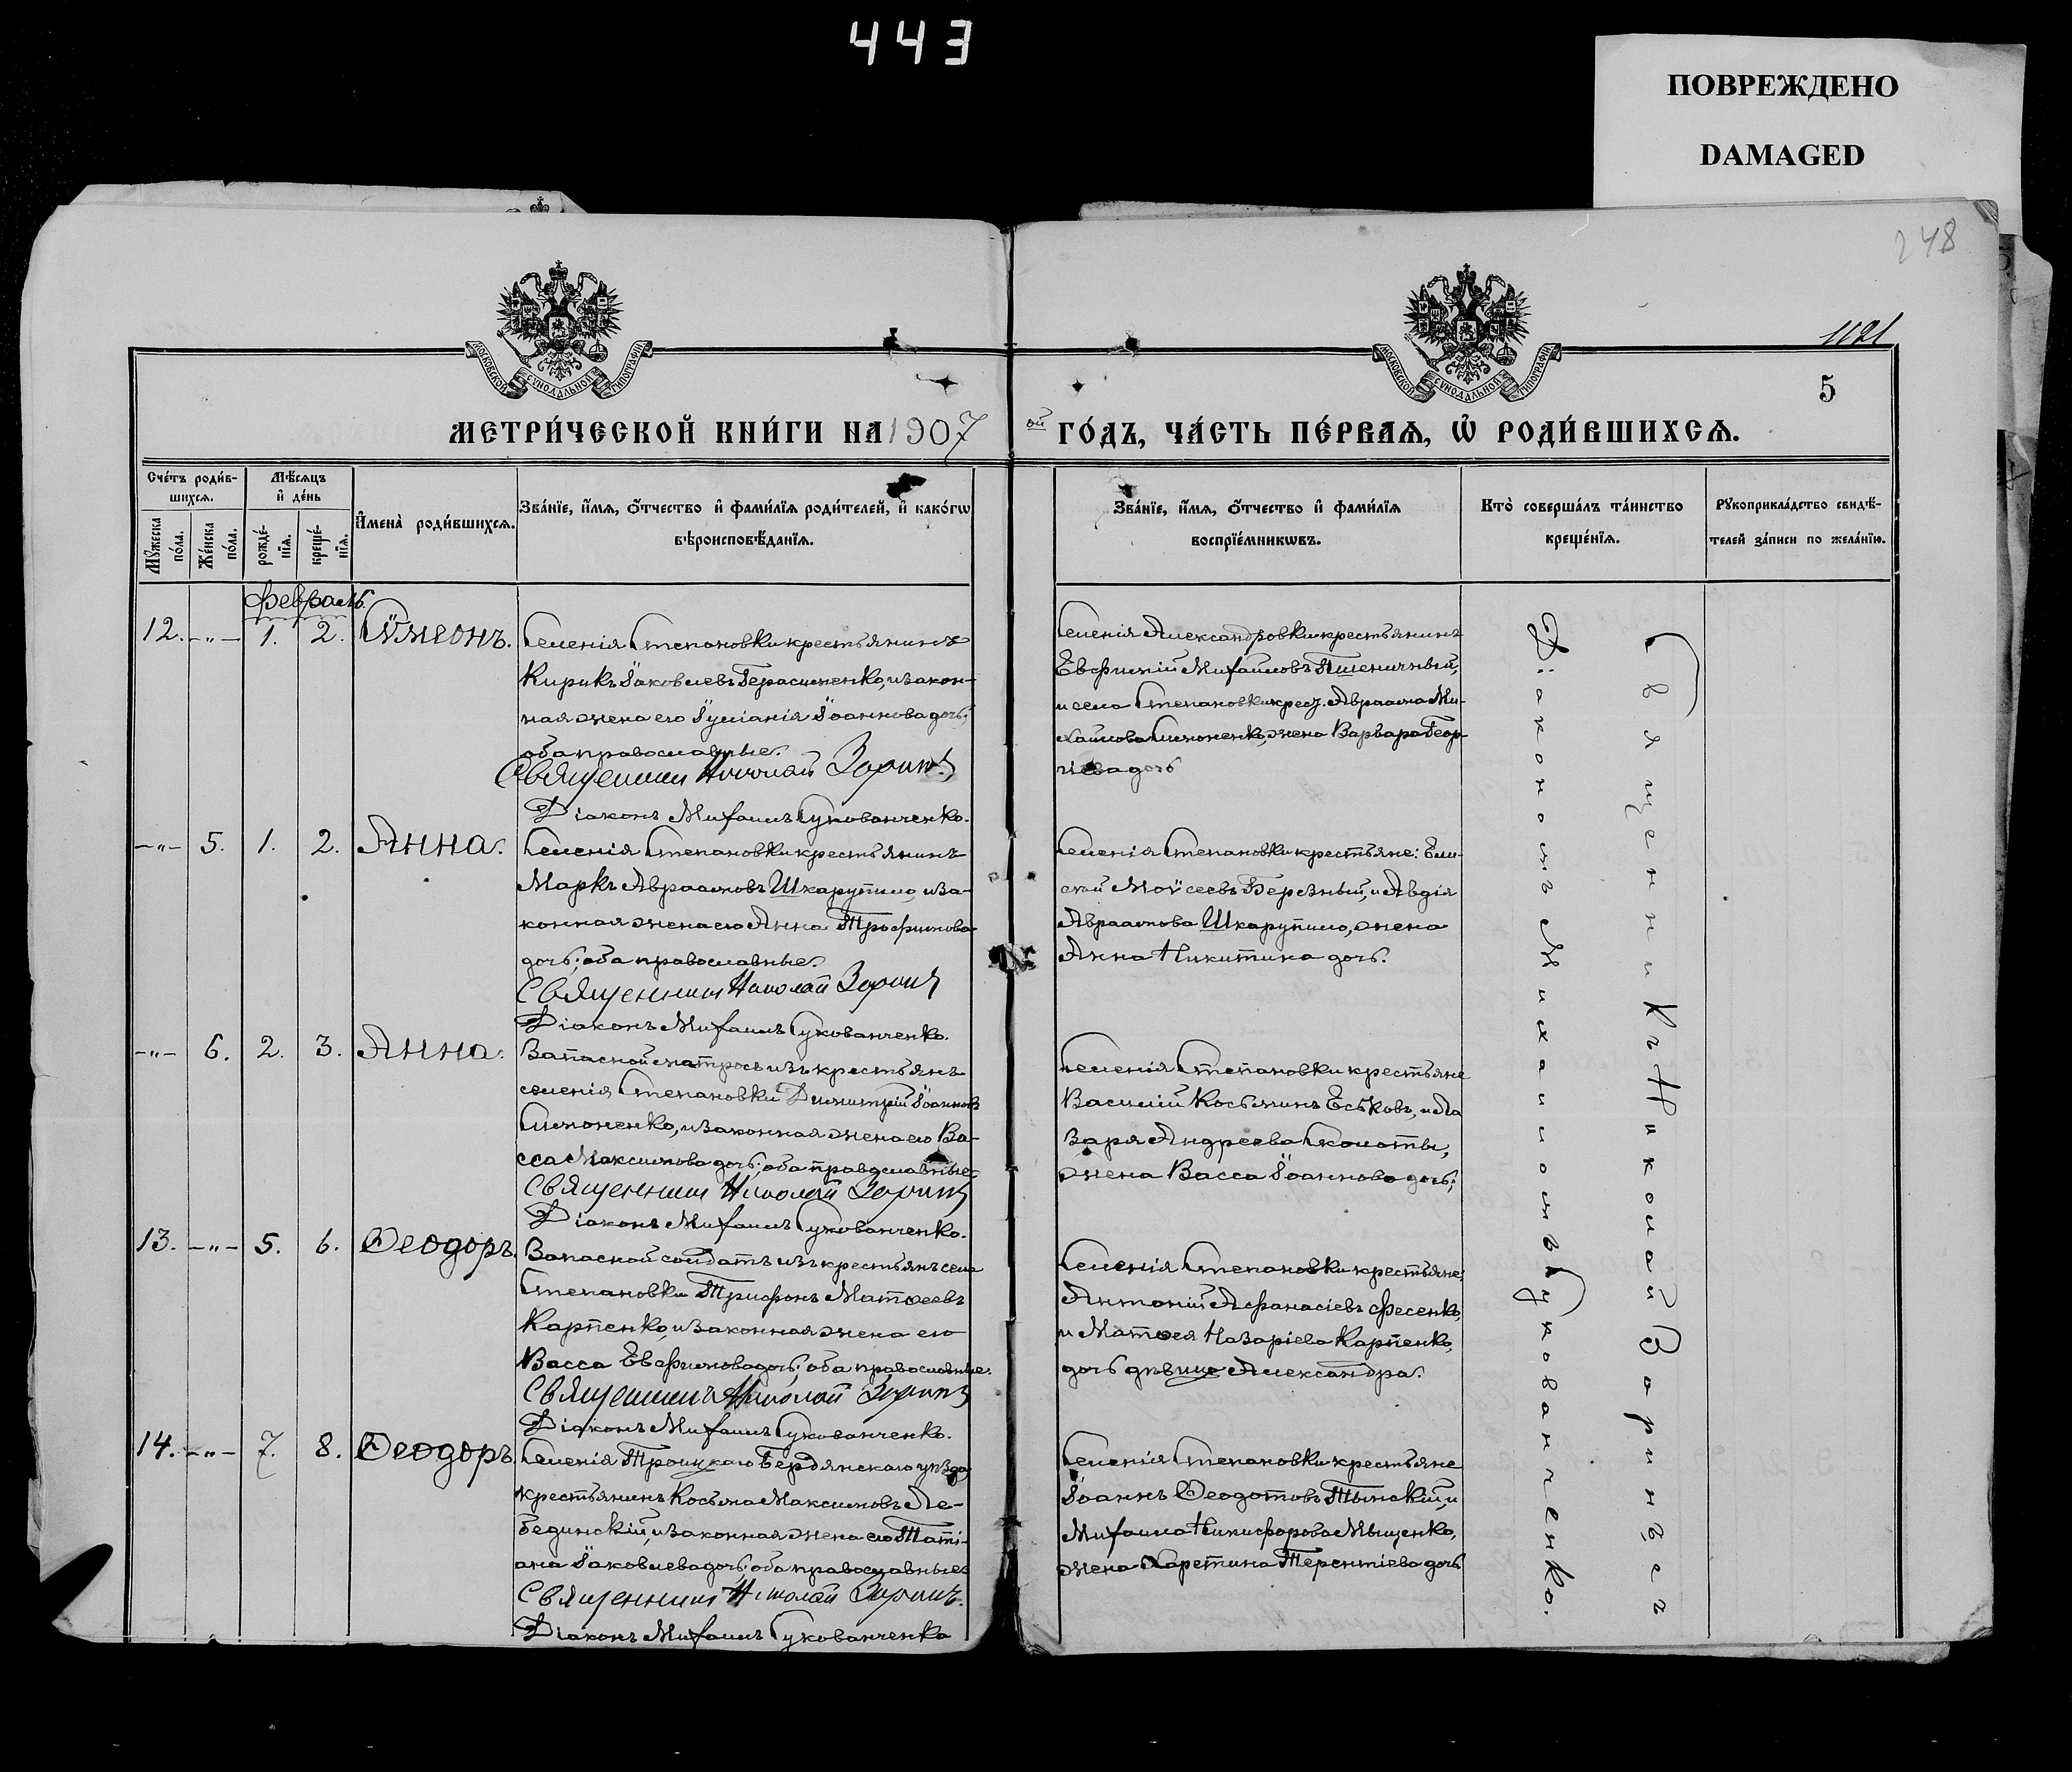 443
ПОВРЕЖДЕНО
DAMAGED
248
1121
5
МОСКОВСКОЙ СѴНОДАЛЬНОЙ ТИПОГРАФІИ
МОСКОВСКОЙ СѴНОДАЛЬНОЙ ТИПОГРАФІИ
МЕТРИ́ЧЕСКОЙ КНИ́ГИ НА 1907 ой ГО́ДЪ, ЧА́СТЬ ПЕ́РВАѦ, Ѡ҆ РОДИ́ВШИХСѦ.
Сче́тъ роди́вшихсѧ.
Мꙋжеска по́ла.
Же́нска по́ла.
Мѣ́сѧцъ и҆ де́нь
рожде́нїѧ.
креще́нїѧ.
И҆мена̀ роди́вшихсѧ.
Зва́нїе, и҆́мѧ, ѻ҆́тчество и҆ фами́лїѧ роди́телей, и҆ како́гѡ
вѣроисповѣ́данїѧ.
Зва́нїе, и҆́мѧ, ѻ҆́тчество и҆ фами́лїѧ
воспрїе́мникѡвъ.
Кто̀ соверша́лъ та́инство
креще́нїѧ.
Рꙋкоприкла́дство свидѣ́-
телей за́писи по жела́нїю.
Февраль.
12. -"- 1. 2. Сѵмеонъ.
Селенія Степановки крестьянинъ
Кирикъ Іаковлевъ Герасименко, и закон-
ная жена его Іуліанія Іоаннова дочь;
оба православные.
Священникъ Николай Зоринъ.
Діаконъ Михаилъ Сукованченко.
Селенія Александровки крестьянинъ
Евфимій Михаиловъ Пшеничный,
и села Степановки крест. Авраама Ми-
хаилова Симоненко, жена Варвара Геор-
гіева дочь
-"- 5. 1. 2. Анна.
Селенія Степановки крестьянинъ
Маркъ Авраамовъ Шкарупило, и за-
конная жена его Анна Трофимова
дочь; оба православные.
Священникъ Николай Зоринъ
Діаконъ Михаилъ Сукованченко.
Селенія Степановки крестьяне: Ели-
сей Моѵсеевъ Березный, и Авдія
Авраамова Шкарупило, жена
Анна Никитина дочь.
-"- 6. 2. 3. Анна.
Запасной матросъ изъ крестьянъ
селенія Степановки Димитрій Іоанновъ
Симоненко, и законная жена его Ва-
сса Максимова дочь; оба православные.
Священникъ Николай Зоринъ
Діаконъ Михаилъ Сукованченко.
Селенія Степановки крестьяне
Василій Косьминъ Еськовъ, и Ла
заря Андреева Сколоты,
жена Васса Іоаннова дочь;
13. -"- 5. 6. Ѳеодоръ.
Запасной солдатъ изъ крестьянъ села
Степановки Трифонъ Матѳеевъ
Карпенко, и законная жена его
Васса Евфимова дочь; оба православные.
Священникъ Николай Зоринъ
Діаконъ Михаилъ Сукованченко.
Селенія Степановки крестьяне:
Антоній Афанасіевъ Фесенко,
и Матѳея Назаріева Карпенко,
дочь дѣвица Александра.
14. -"- 7. 8. Ѳеодоръ.
Селенія Троицкаго Бердянскаго уѣзда
крестьянинъ Косьма Максимовъ Ле-
бединскій, и законная жена его Таті-
ана Іаковлева дочь; оба православные
Священникъ Николай Зоринъ.
Діаконъ Михаилъ Сукованченко
Селенія Степановки крестьяне
Іоаннъ Ѳеодотовъ Тынскій, и
Михаила Никифорова Мыценко,
жена Харетина Терентіева дочь
Священникъ Николай Зоринъ съ
Діакономъ Михаиломъ Сукованченко.